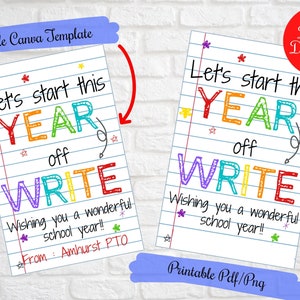 le Canva Template
et's start this
YEAR
off
WRITE
Wishing you a wonderful
school year!!
From : Amhurst PTO
Let's start th
YEAR
off
WRITE
Wishing you a wonderful
school year!!
Printable Pdf/Png